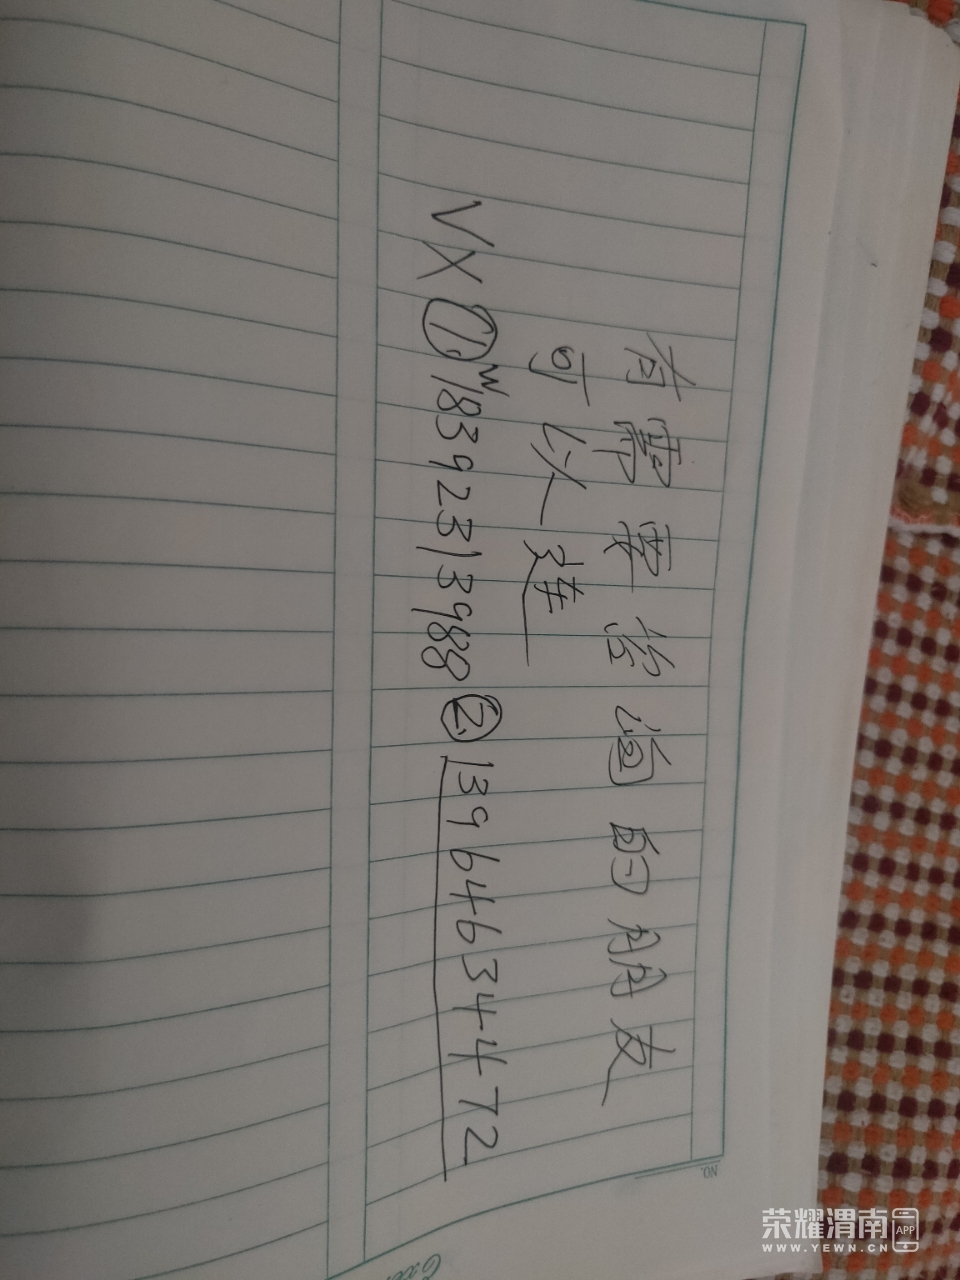 有需要的朋友
可以
VX ① 18392313988 ② 13964634472
NO.
荣耀渭南 APP
WWW.YEWN.CN